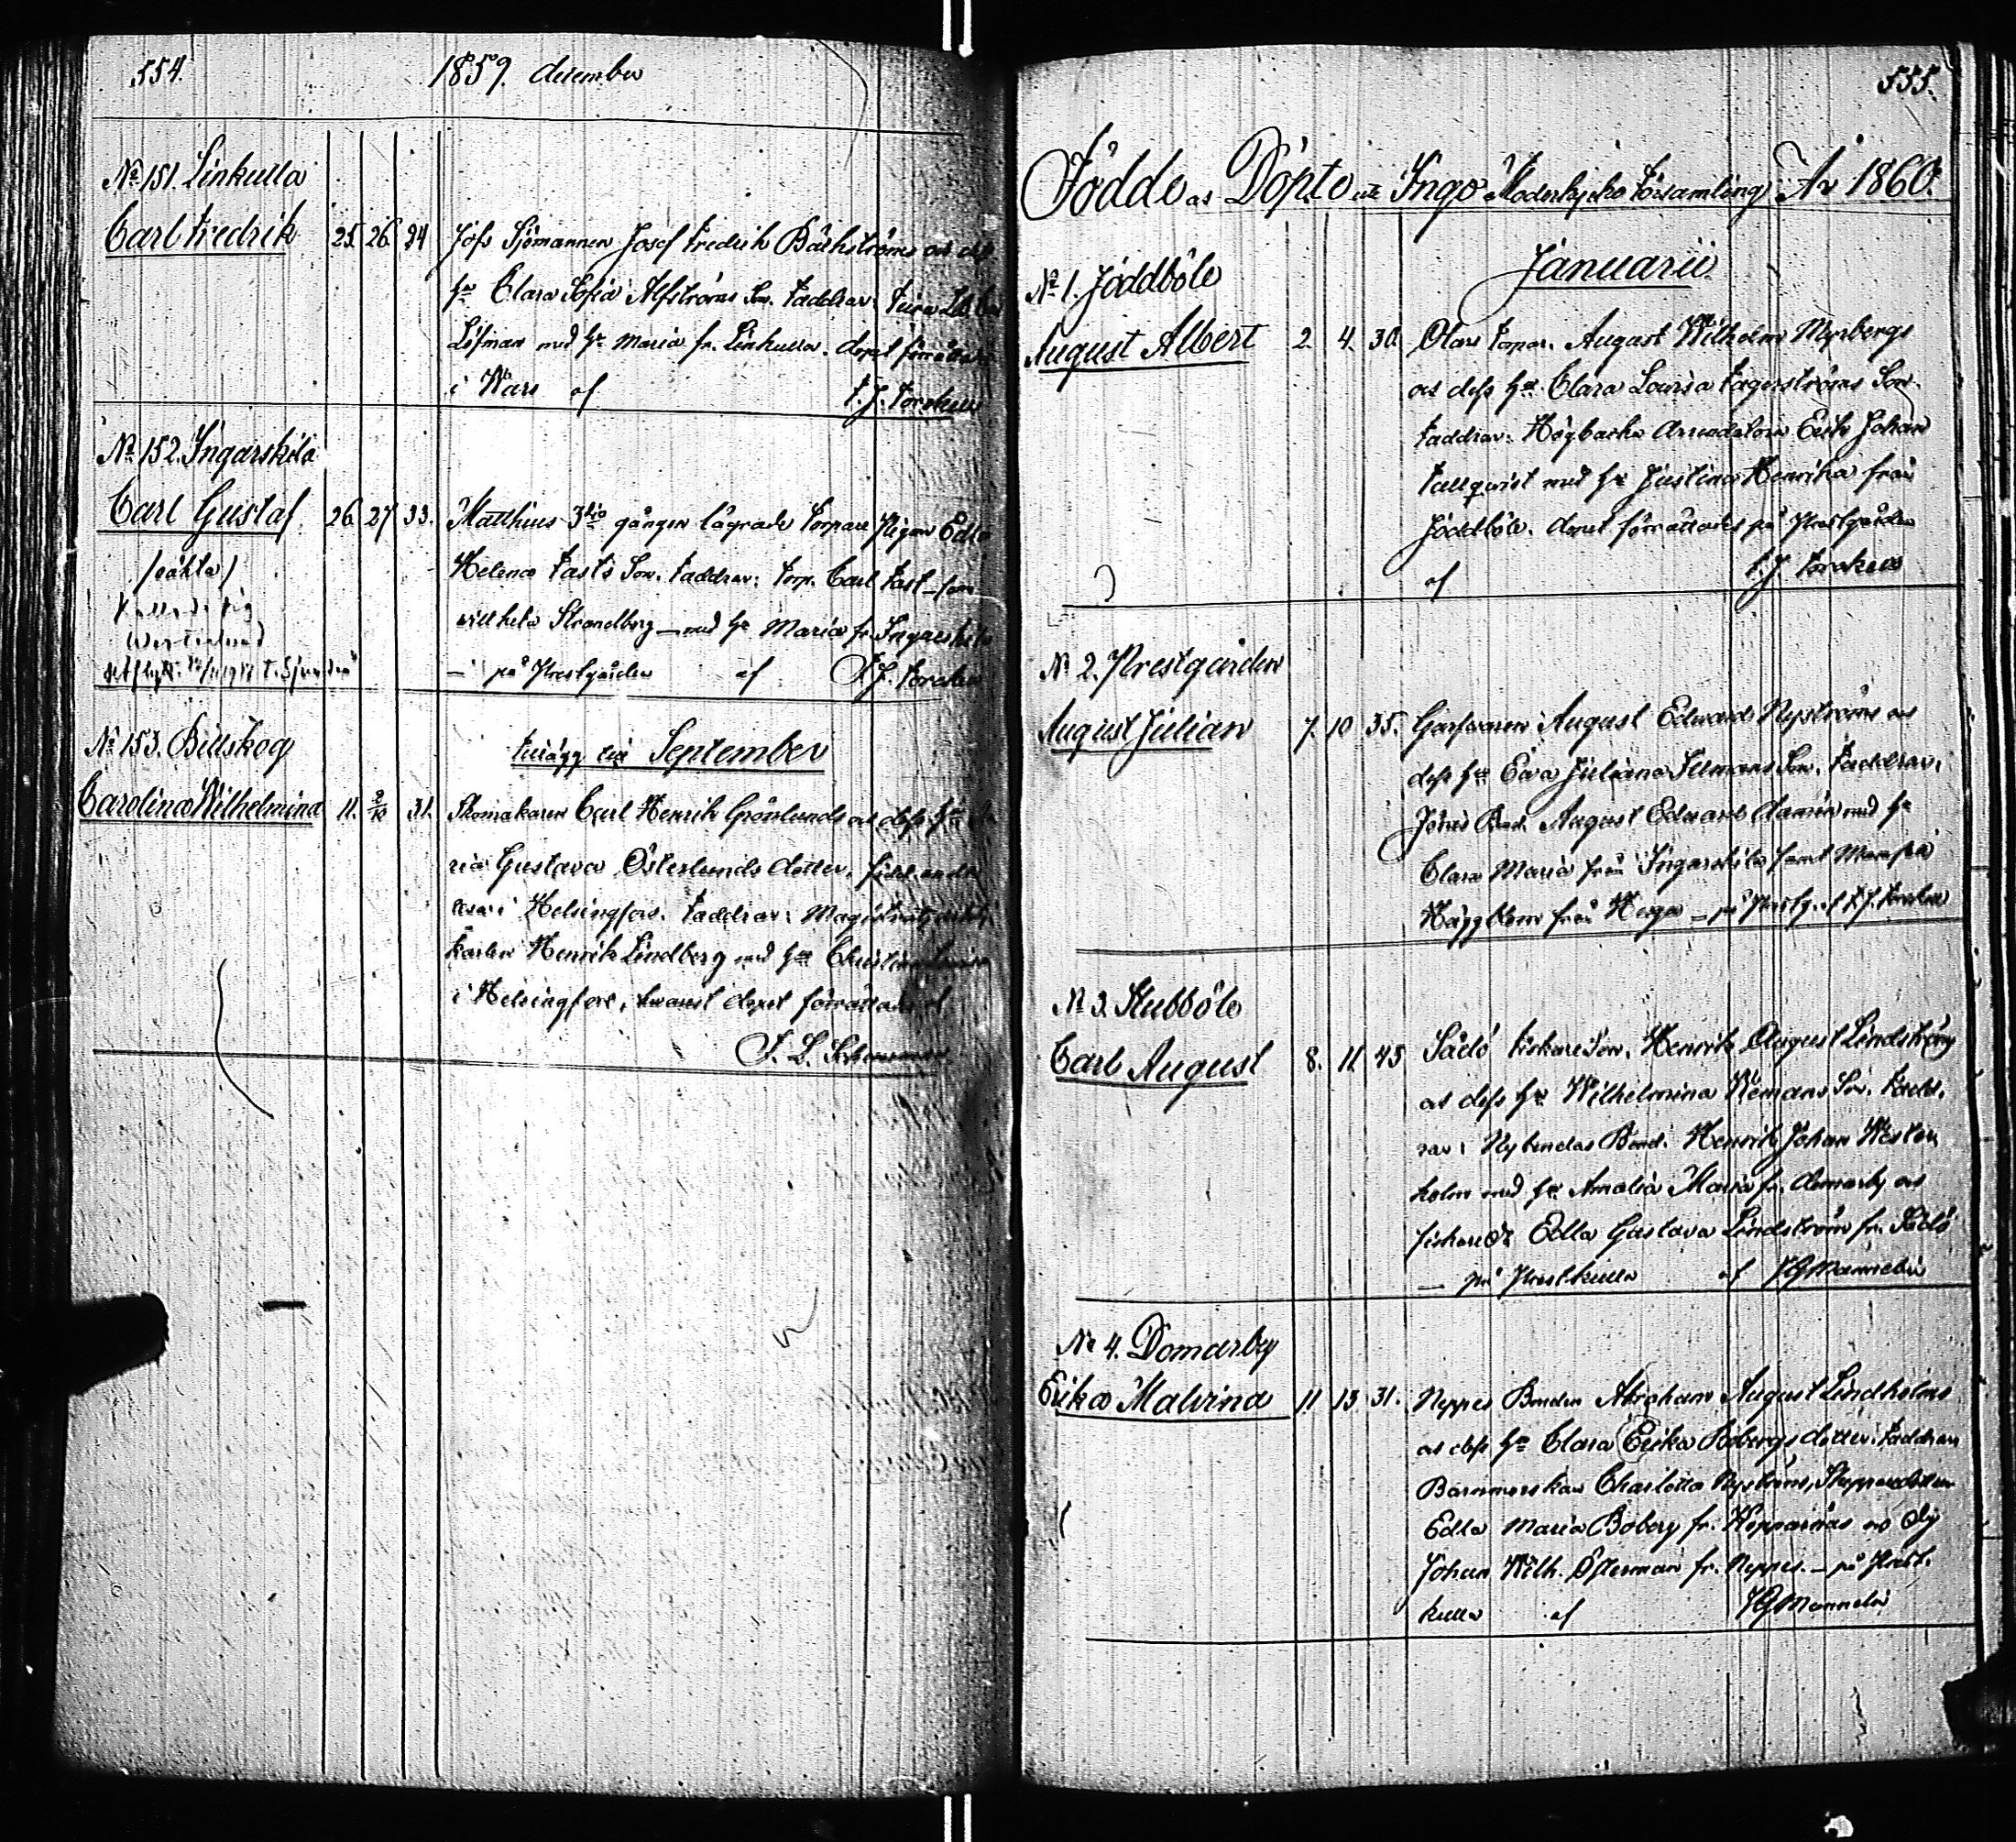 554.
1859. december
No 151. Linkulla
Carl Fredrik 25. 26. 24
Sjömannen Josef Fredrik Bäckströms
hu Clara Sofia Alfströms Son. Faddrar:
Löfman med hu Maria fr. Linkulla. dopet
i Wars af F. J. Forskell
No 152. Ingarskila
Carl Gustaf. 26. 27 33.
Matthius 3dje gången lägrade Torpare Pigan Edla
/oäkta/
Helena Fasts Son. Faddrar: Torp. Carl Fast
Strandberg — med hu Maria fr. Ingarskila
— på Prestgården af F. J. Forskell
No 153. Billskog
Tillägg till September
Carolina Wilhelmina 11. 9/10 31.
Skomakaren Carl Henrik Grönlunds och dess hu
ria Gustava Österlunds dotter.
i Helsingfors. Faddrar:
karlen Henrik Lindberg med hu
i Helsingfors, hwarest dopet förrättades af
555.
Födde och Döpte uti Ingo Moderkyrko Församling År 1860.
Januarii
No 1. Joddböle
August Albert 2. 4. 30.
Olars Torpar. August Wilhelm Myrbergs
och dess hu Clara Lovisa Fagerströms Son.
Faddrar: Högbacka Erik Johan
Tallqvist med hu Justina Henrika från
Joddböle. dopet förrättades på Prestgården
af F. J. Forskell
No 2. Prestgården
August Julian 7. 10 35.
Garfvaren August Edvard Nyströms och
dess hu Eva Juliana Son. Faddrar:
August Edvard med hu
Clara Maria från Ingarskila samt
Häggblom från — på Prestg. af F. J. Forskell
No 3. Stubböle
Carl August 8. 11. 45
Sådö Fiskare Son. Henrik August Lindströms
och dess hu Wilhelmina Nemans Son. Fadd-
rar: Bond. Henrik Johan Wester-
holm med hu Amalia Maria fr. Domarby och
fiskare Edla Gustava Lindström fr. Sådö
— på Prestkulla af
No 4. Domarby
Erika Malvina 11 13. 31.
Neppes Bonden Abraham August Lindholms
och dess hu Clara Erika Bobergs dotter. Faddrar
Barnmorskan Charlotta Nyström,
Edla Maria Boberg fr. Kopparnäs och
Johan Wilh. Österman fr. Neppes. — på Prest-
kulla af